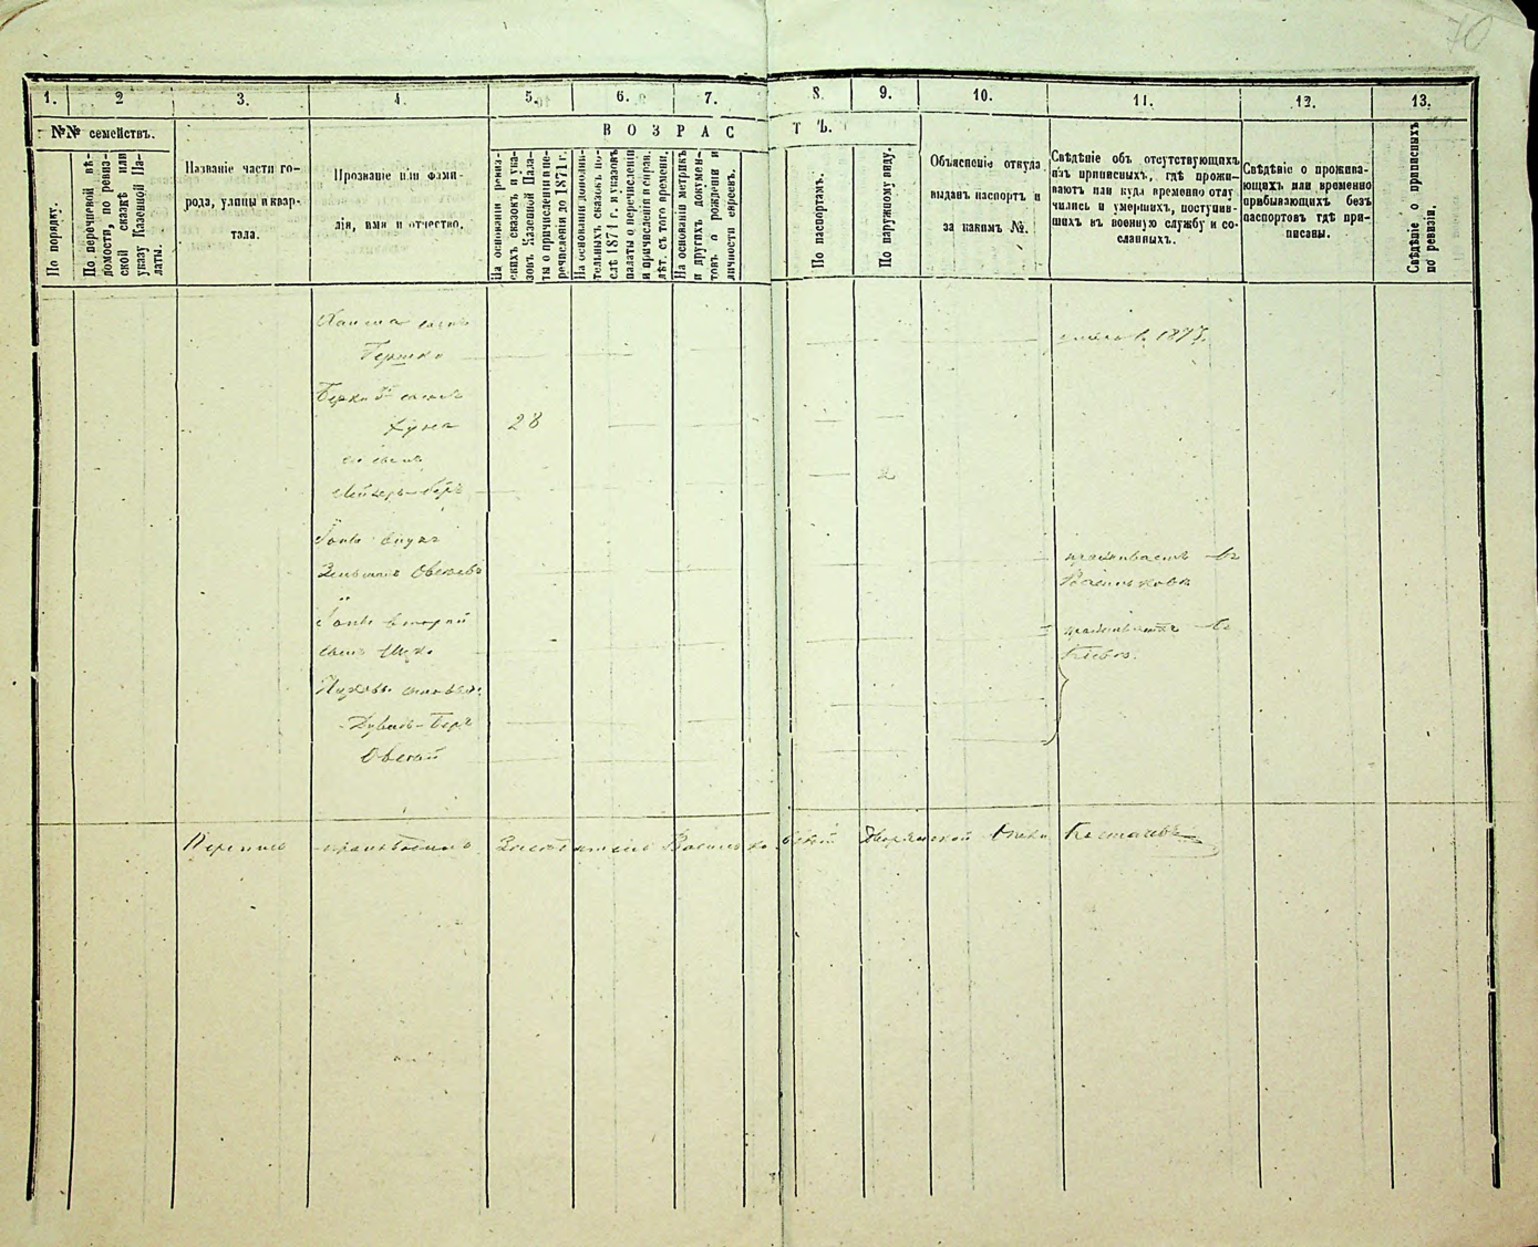 70
1. 2 3. 4. 5. 6. 7. 8. 9. 10. 11. 12. 13.
№№ семействъ.
По порядку.
По перечневой вѣ-
домости, по ревиз-
ской сказкѣ или
указу Казенной Па-
латы.
Названіе части го-
рода, улицы и квар-
тала.
Прозваніе или фами-
лія, имя и отчество.
ВОЗРАСТЪ.
На основаніи ревиз-
скихъ сказокъ и ука-
зовъ Казенной Пала-
ты о причисленіи и пе-
речисленіи до 1871 г.
На основаніи дополни-
тельныхъ сказокъ по-
слѣ 1871 г. и указовъ
палаты о перечисленіи
и причисленіи и справ.
лѣт. съ того времени.
На основаніи метрикъ
и другихъ докумен-
товъ о рожденіи и
личности евреевъ.
По паспортамъ.
По наружному виду.
Объясненіе откуда
выданъ паспортъ и
за какимъ №.
Свѣдѣніе объ отсутствующихъ
изъ приписныхъ, гдѣ прожи-
ваютъ или куда временно отлу
чились и умершихъ, поступив-
шихъ въ военную службу и со-
сланныхъ.
Свѣдѣніе о прожива-
ющихъ или временно
прибывающихъ безъ
паспортовъ гдѣ при-
писаны.
Свѣдѣніе о приписныхъ
по ревизіи.
сынъ
Гершко
Берки сынъ
28
его сынъ
Лейзеръ-Беръ
внукъ
проживаетъ въ
Васильковѣ
второй
сынъ
проживаетъ въ
Кіевѣ.
сыновья:
Дувидъ-Беръ
Овсей
Перепись производилъ Засѣдатель Васильковской Дворянской Опеки